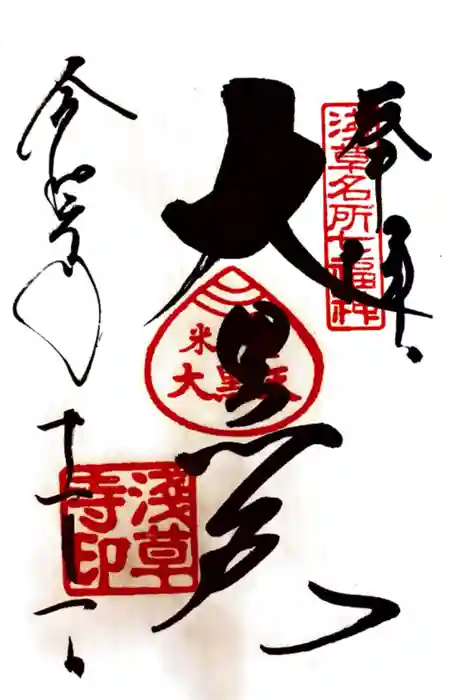 奉拝
淺草名所七福神
大黒天
米
大黒天
淺草寺印
令和
十一